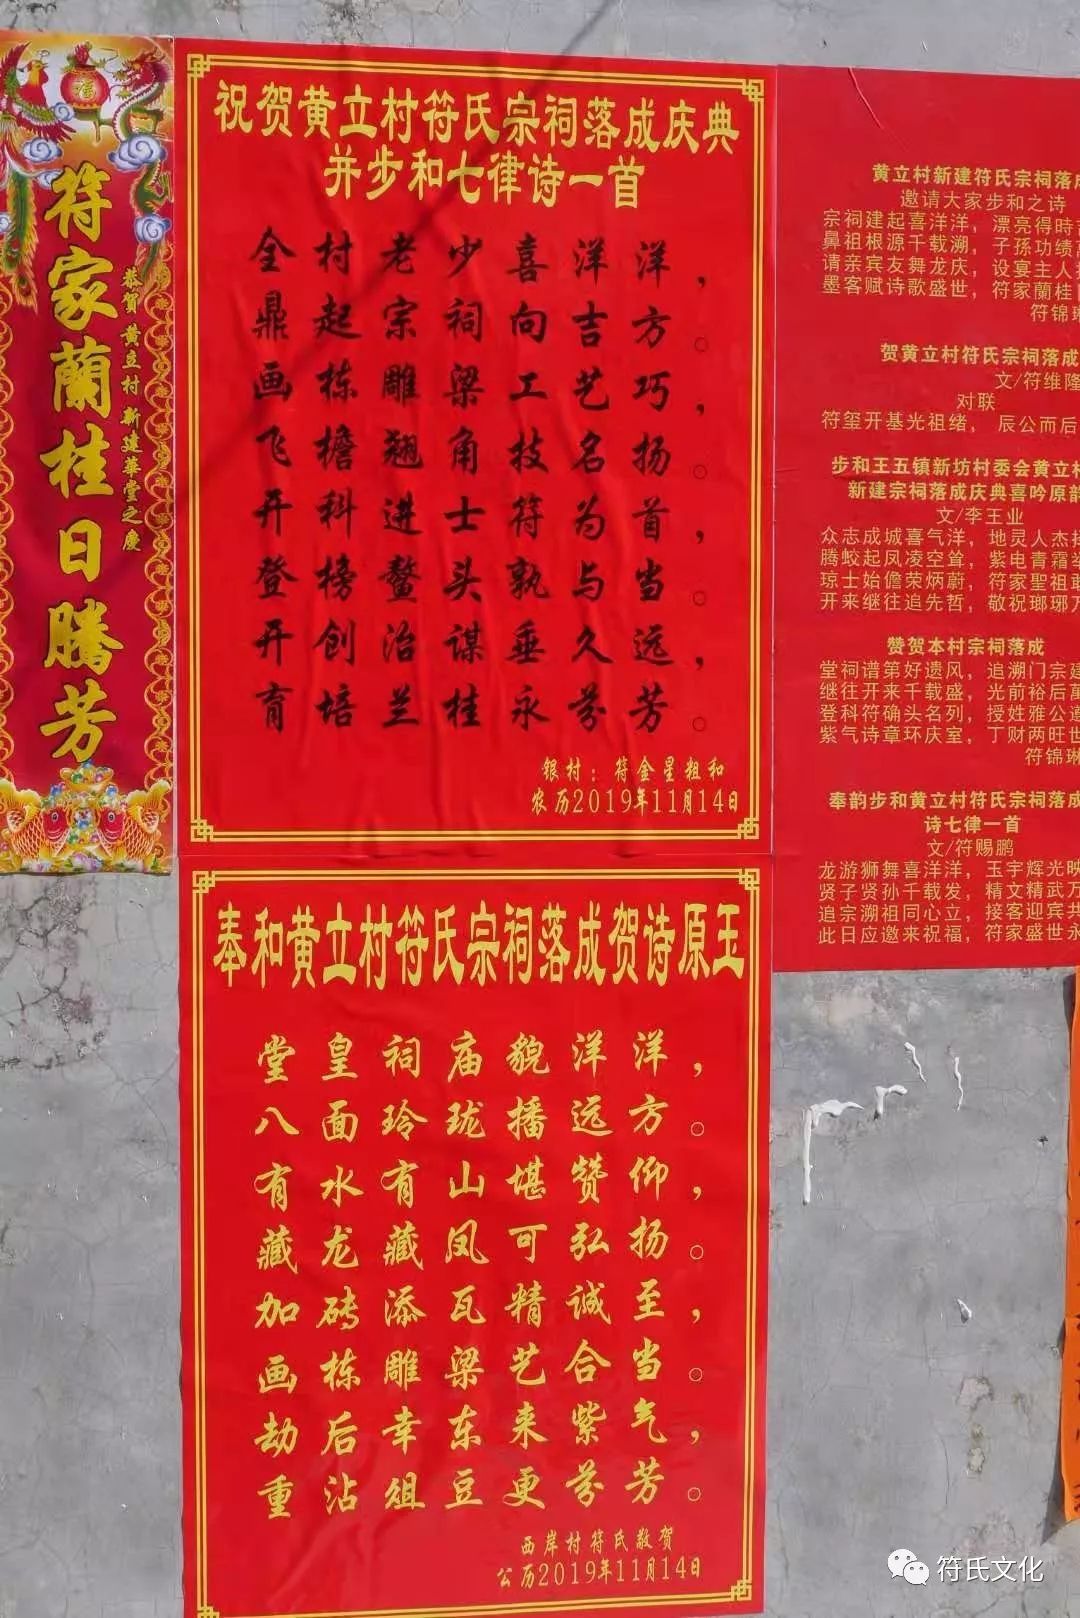 福
符家蘭桂日騰芳
恭賀黄立村新建華堂之慶
祝贺黄立村符氏宗祠落成庆典
并步和七律诗一首
全村老少喜洋洋，
鼎起宗祠向吉方。
画栋雕梁工艺巧，
飞檐翘角技名扬。
开科进士符为首，
登榜鳌头孰与当。
开创治谋垂久远，
育培兰桂永芬芳。
银村：符金星粗和
农历2019年11月14日
奉和黄立村符氏宗祠落成贺诗原玉
堂皇祠庙貌洋洋，
八面玲珑播远方。
有水有山堪赞仰，
藏龙藏凤可弘扬。
加砖添瓦精诚至，
画栋雕梁艺合当。
劫后幸东来紫气，
重沾俎豆更芬芳。
西岸村符氏敬贺
公历2019年11月14日
黄立村新建符氏宗祠落成
邀请大家步和之诗
宗祠建起喜洋洋，漂亮得時
鼻祖根源千载溯，子孫功绩
请亲宾友舞龙庆，设宴主人
墨客赋诗歌盛世，符家蘭桂
符锦琳
贺黄立村符氏宗祠落成
文/符维隆
对联
符玺开基光祖绪，辰公而后
步和王五镇新坊村委会黄立村
新建宗祠落成庆典喜吟原韵
文/李王业
众志成城喜气洋，地灵人杰
腾蛟起凤凌空耸，紫电青霜
琼士始儋荣炳蔚，符家聖祖
开来继往追先哲，敬祝瑯琊
赞贺本村宗祠落成
堂祠谱第好遗风，追溯门宗
继往开来千载盛，光前裕后萬
登科符确头名列，授姓雅公
紫气诗章环庆室，丁财两旺世
符锦琳
奉韵步和黄立村符氏宗祠落成
诗七律一首
文/符赐鹏
龙游狮舞喜洋洋，玉宇辉光映
贤子贤孙千载发，精文精武万
追宗溯祖同心立，接客迎宾共
此日应邀来祝福，符家盛世永
符氏文化